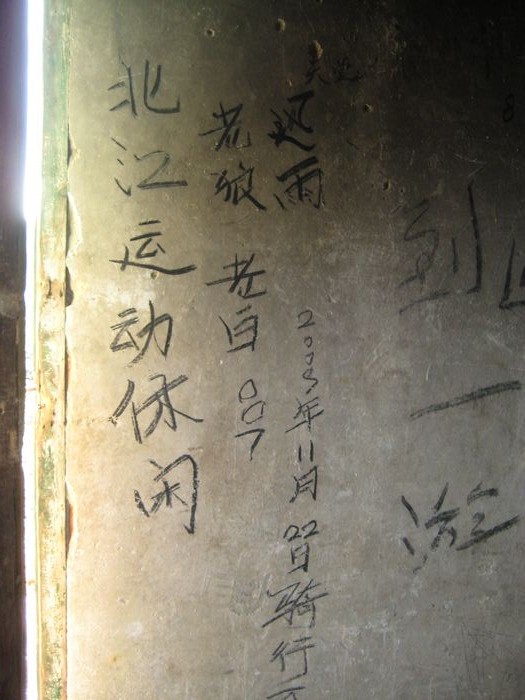 北江运动休闲
老狼 老白 007
风雨
2008年11月22日骑行
到
一
游